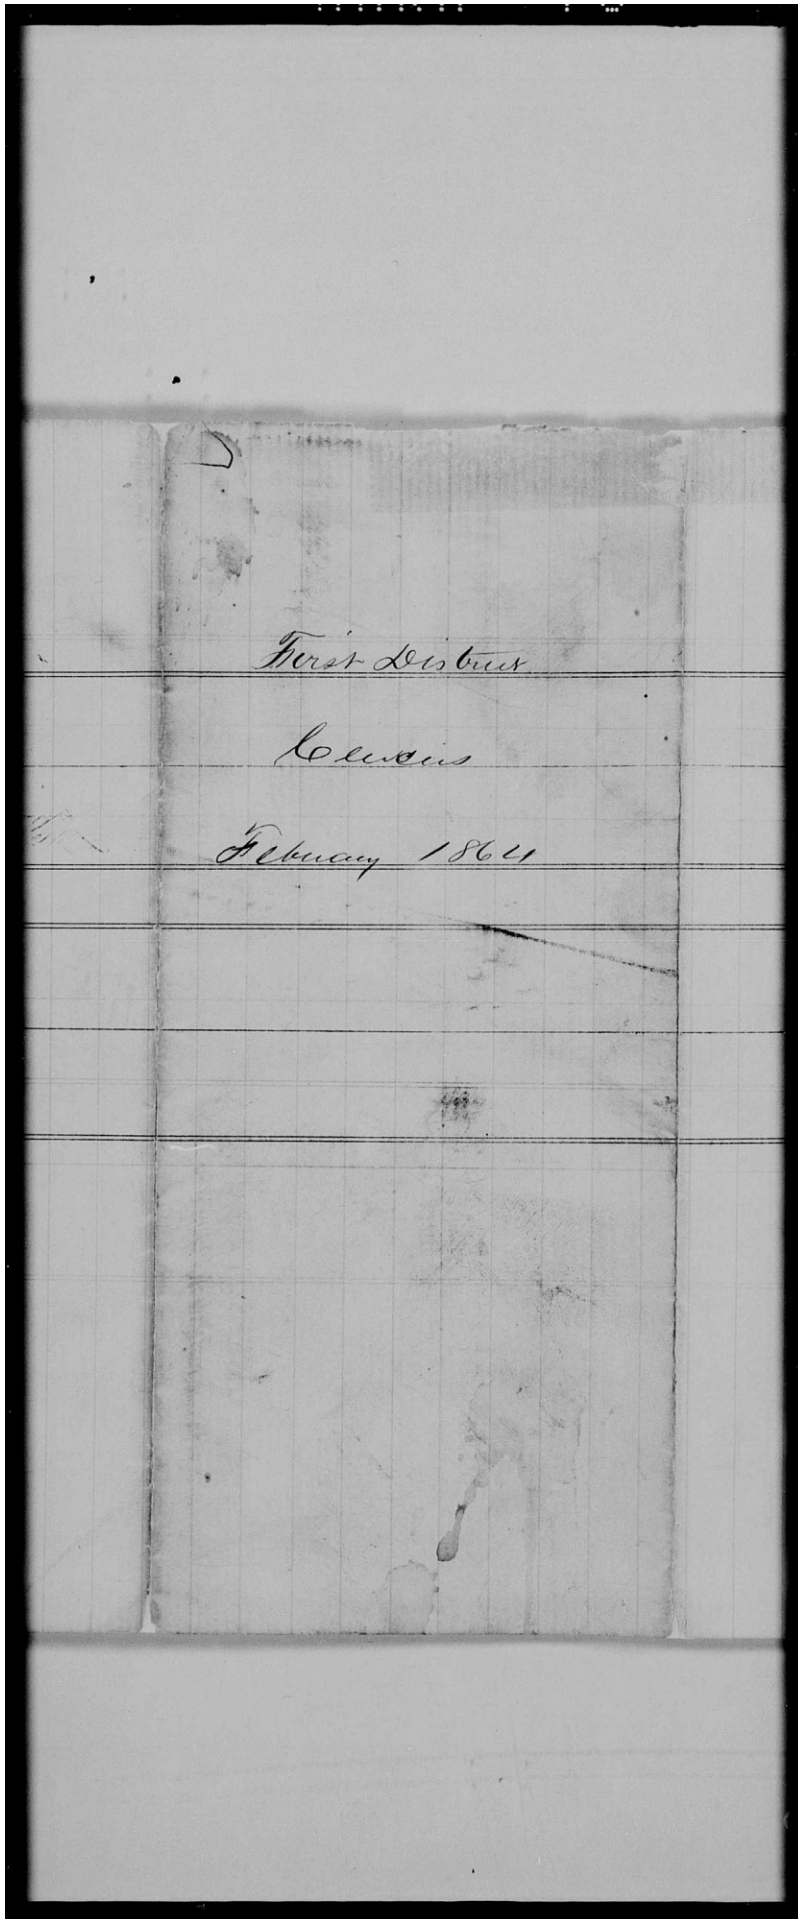 First District
Census
February 1864